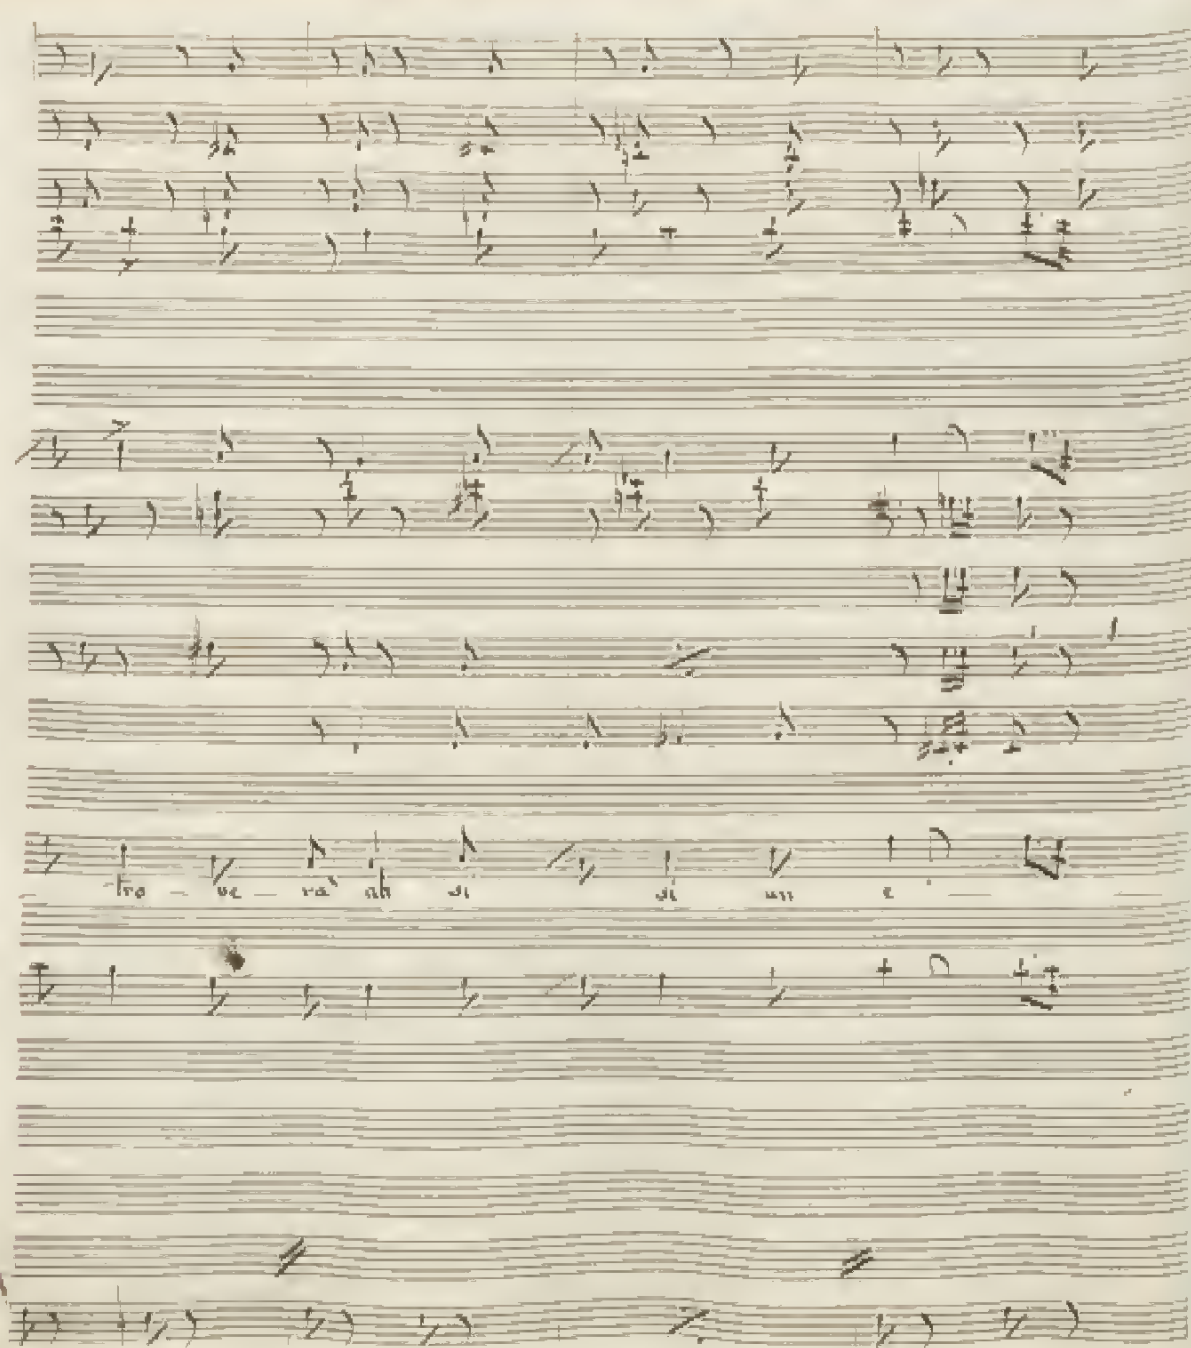 tro — ve — rà ah si si un e —